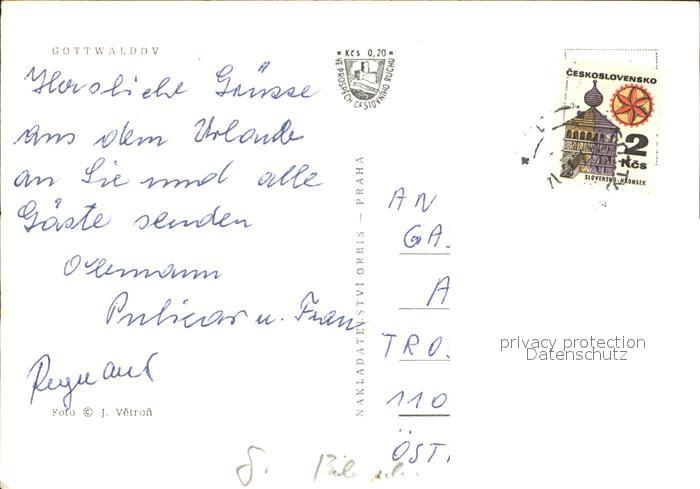 GOTTWALDOV
Herzliche Grüsse
aus dem Urlaube
an Sie und alle
Gäste senden
u. Frau
Foto © J. Větroň
NAKLADATELSTVÍ ORBIS — PRAHA
* Kčs 0,20 *
VE PROSPĚCH CESTOVNÍHO RUCHU
ČESKOSLOVENSKO
2
Kčs
SLOVENSKO-HRONSEK
AN
GA
A
TRO
110
ÖST
privacy protection
Datenschutz